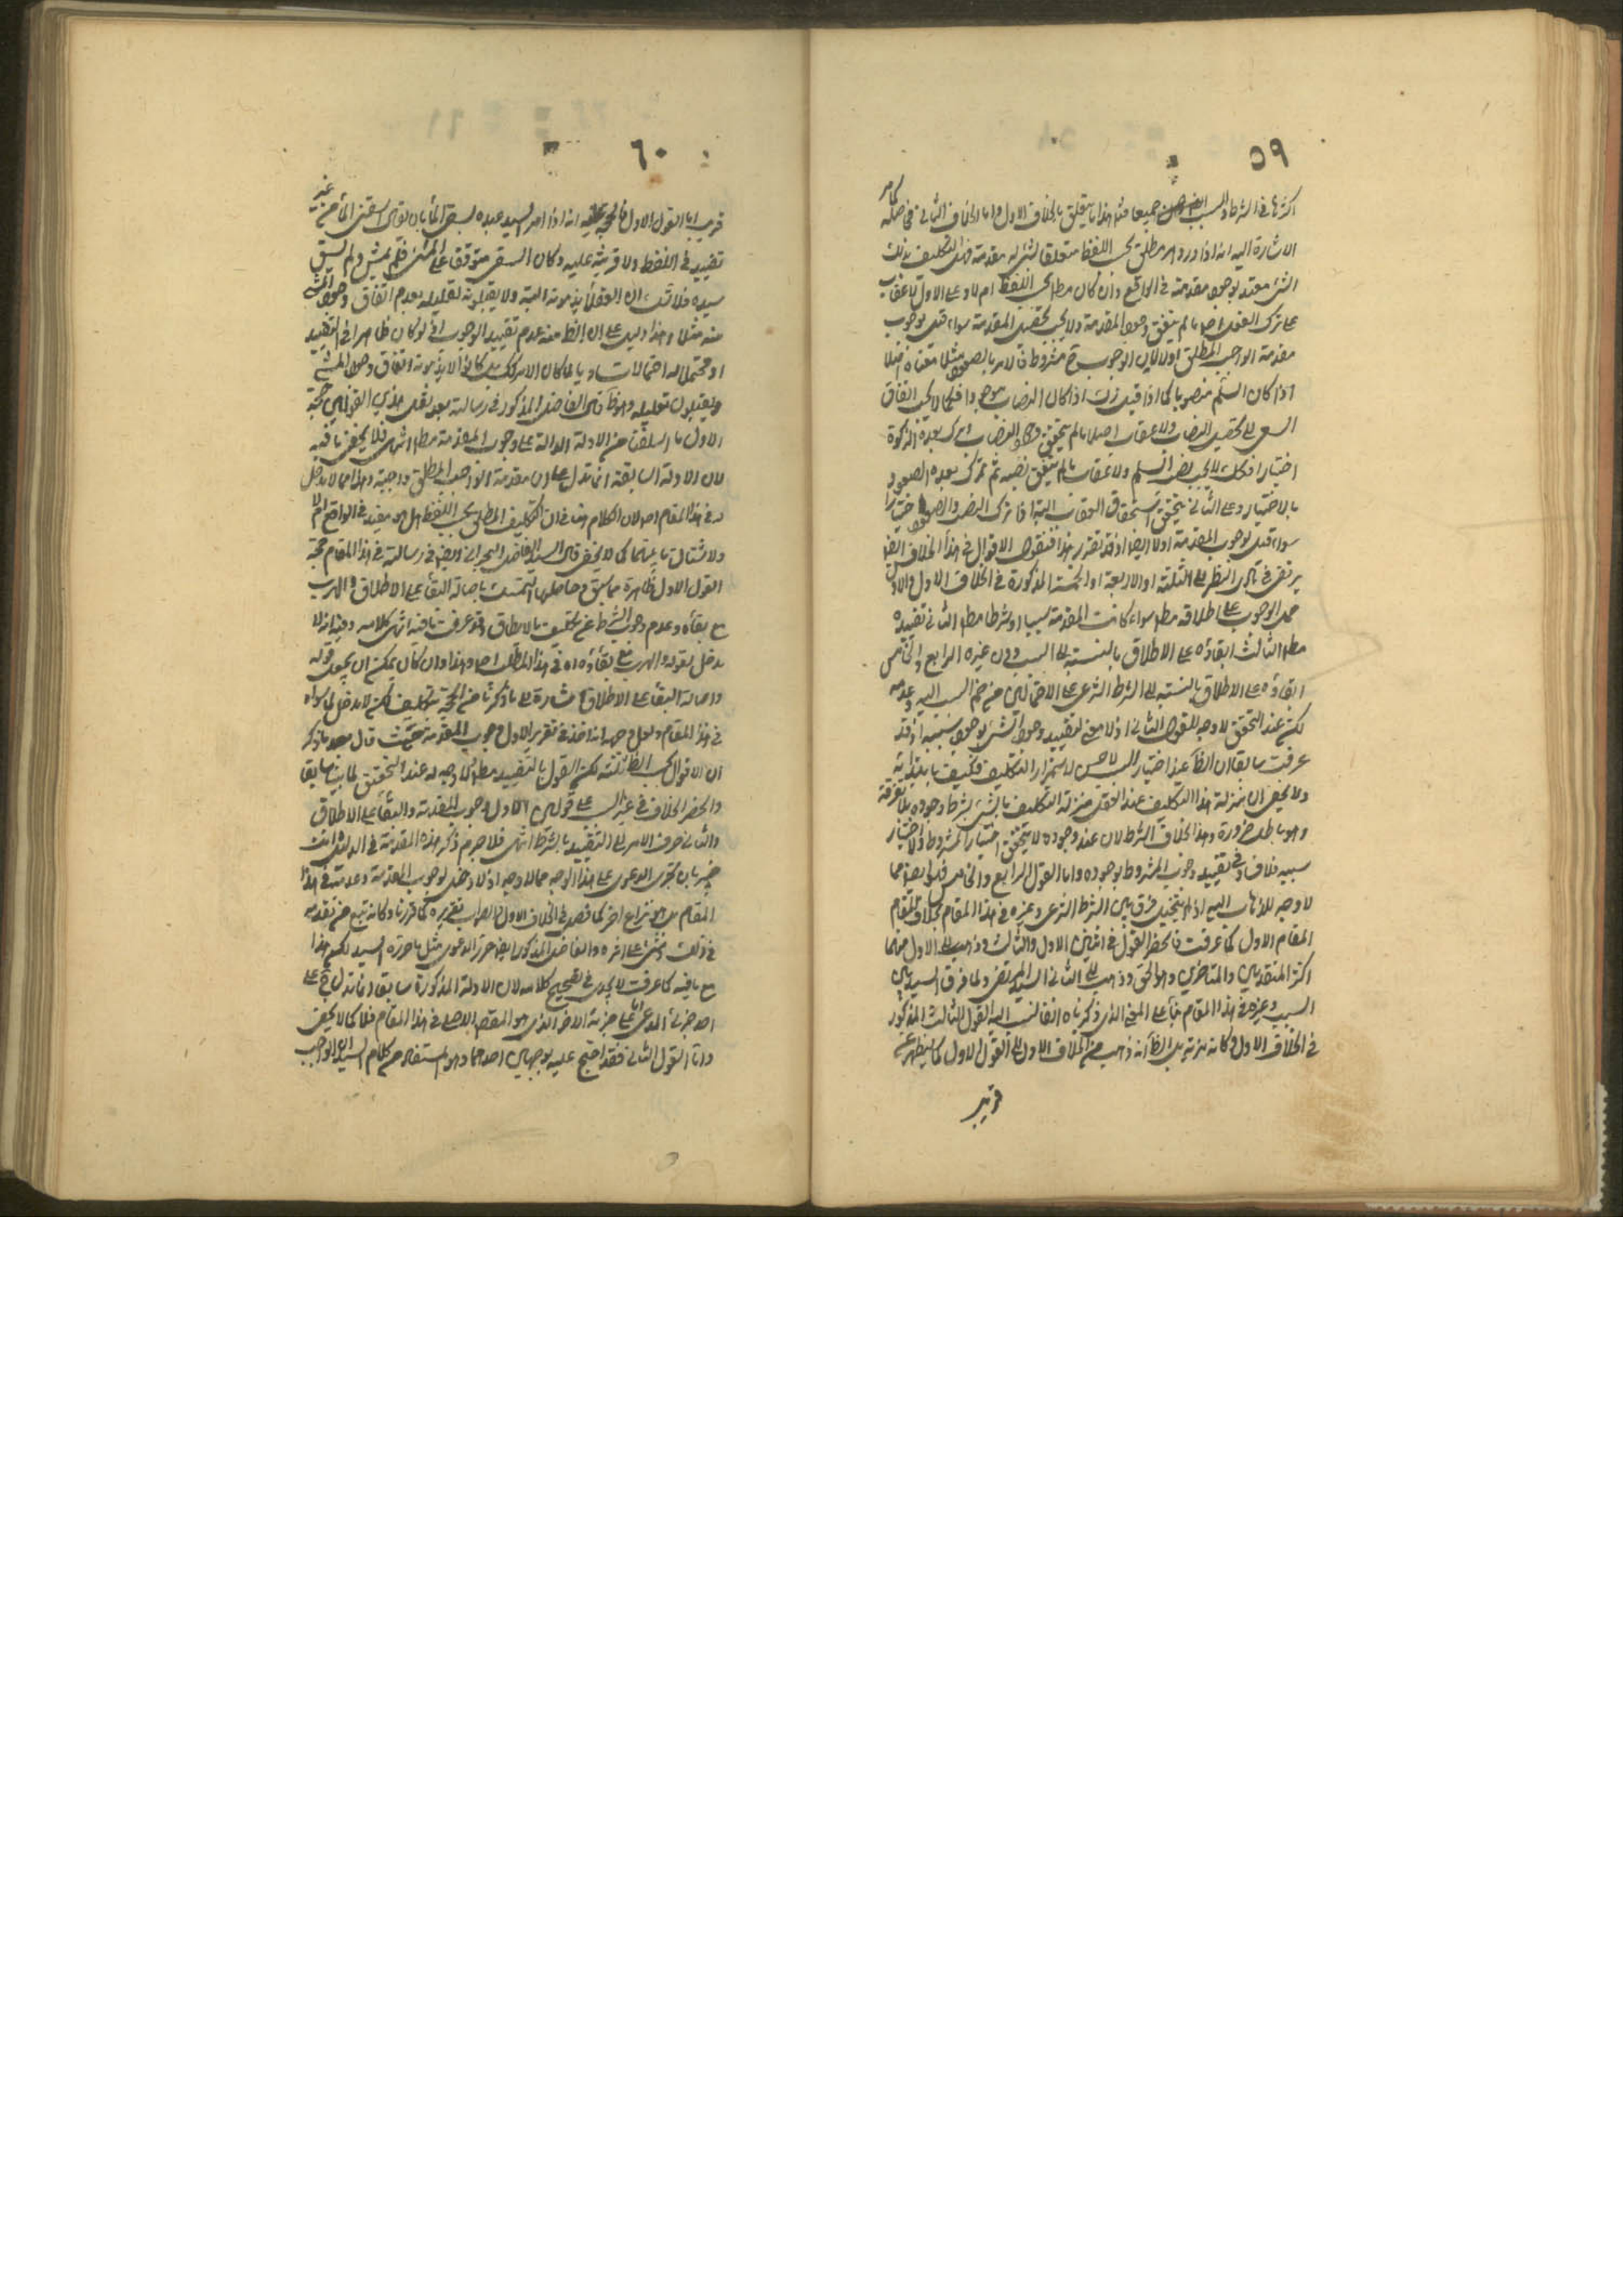 ٥٩
اكثرها في الشرط والسبب جميعا هذا ما يتعلق بالخلاف الاول واما الخلاف الثاني فحاصله كما مر
الاشارة اليه انه اذا ورد امر مطلق بحسب اللفظ متعلقا لشئ له مقدمة فهل التكليف بذلك
الشئ مقيد بوجود مقدمته في الواقع وان كان مطلقا بحسب اللفظ ام لا وعلى الاول لا عقاب
على ترك الفعل اصلا ما لم يتفق وجود المقدمة ولا يجب تحصيل المقدمة سواء قيل بوجوب
مقدمة الواجب المطلق اولا لان الوجوب ح مشروط فالامر بالصعود مثلا معناه اصعد
اذا كان السلم منصوبا كما اذا قيل زك اذا كان النصاب موجودا فكما لا يجب اتفاقا
السعي الى تحصيل النصاب ولا عقاب اصلا ما لم يتحقق وجود النصاب ثم ترك بعده الزكوة
اختيارا فكذلك لا يجب نصب السلم ولا عقاب ما لم يتفق نصبه ثم ترك بعده الصعود
بالاختيار وعلى الثاني يتحقق استحقاق العقاب البتة اذا ترك النصب والصعود اختيارا
سواء قيل بوجوب المقدمة اولا ايضا اذا تقرر هذا فنقول الاقوال في هذا الخلاف ايضا
يرتقى في بادي النظر الى الثلثة او الاربعة او الخمسة المذكورة في الخلاف الاول الاول
حمل الوجوب على اطلاقه مطلقا سواء كانت المقدمة سببا او شرطا مطلقا الثاني تقييده
مطلقا الثالث ابقاؤه على الاطلاق بالنسبة الى السبب دون غيره الرابع والخامس
ابقاؤه على الاطلاق بالنسبة الى الشرط الشرعي على الاحتمالين من ضم السبب اليه وعدمه
لكن عند التحقيق لا وجه للقول الثاني اذ لا معنى لتقييد وجوب الشئ بوجود سببه اذ قد
عرفت سابقا ان الظ عند اختيار السبب لا حسن لاستمرار التكليف فكيف بابتدائه
ولا يخفى ان بمنزلة هذا التكليف عند العقل منزلة التكليف بالشئ بشرط وجوده بلا تفرقة
وهو باطل ضرورة وهذا بخلاف الشرط لان عند وجوده لا يتحقق اختيار المشروط والاختيار
سببه فلا فساد في تقييد وجوب المشروط بوجوده واما القول الرابع والخامس فهما ايضا مما
لا وجه للذهاب اليه اذ لا يتخيل فرق بين الشرط الشرعي وغيره في هذا المقام بخلاف المقام
المقام الاول كما عرفت فانحصر القول في اثنين الاول والثالث وذهب الى الاول منهما
اكثر المتقدمين والمتاخرين وهو الحق وذهب الى الثاني السيد المرتضى ولما فرق السيد بين
السبب وغيره في هذا المقام بناء على المعنى الذي ذكرناه انفا نسب اليه القول الثالث المذكور
في الخلاف الاول وكانه مزية بل الظ انه ذهب من الخلاف الاول الى القول الاول كما سيظهر عن
قريب
٦٠
قريب اما القول الاول فالحجة عليه انه اذا امر السيد عبده بسقي الماء بان يقول اسقني الماء من غير
تقييد في اللفظ ولا قرينة عليه وكان السقي متوقفا على المشي فلم يمش ولم يسق
سيده فلا شك ان العقلاء يذمونه البتة ولا يقبلون تعليله بعدم اتفاق وجود المشي
منه مثلا وهذا دليل على ان الظ منه عدم تقييد الوجوب اذ لو كان ظاهرا في التقييد
او محتملا له احتمالا متساويا لما كان الامر كذلك بل كانوا لا يذمونه اتفاق وجود المشي
ويقبلون تعليله وهو ظ وقال الفاضل المذكور في رسالته بعد نقل هذين القولين حجة
الاول ما اسلفنا من الادلة الدالة على وجوب المقدمة مطلقا انتهى فلا يخفى ما فيه
لان الادلة السابقة انما تدل على ان مقدمة الواجب المطلق واجبة وهذا مما لا دخل
له في هذا المقام اصلا لان الكلام هنا في ان التكليف المطلق بحسب اللفظ هل هو مقيد في الواقع ام لا
ولا شتان ما بينهما كما لا يخفى قال السيد الفاضل البحراني ايضا في رسالته في هذا المقام حجة
القول الاول ظاهرة مما سبق وحاصلها التمسك باصالة البقاء على الاطلاق والهرب
مع بقاءه وعدم وجوب الشرط عن تكليف ما لا يطاق وقد عرفت ما فيه انتهى كلامه وفيه انه لا
مدخل لقوله والهرب مع بقاءه اه في هذا المطلب اصلا وهذا وان كان يمكن ان يحمل قوله
واصالة البقاء على الاطلاق اشارة الى ما ذكرنا من الحجة بتكليف لكن لا مدخل لما سواه
في هذا المقام ولعل وجهه انه اخذ في تقرير الاول وجوب المقدمة حيث قال بعد ما ذكر
ان الاقوال بحسب الظ ثلثة لكن القول بالتقييد مطلقا لا وجه له عند التحقيق لما بينا سابقا
وانحصر الخلاف في غير السبب على قولين الاول وجوب المقدمة والبقاء على الاطلاق
والثاني صرف الامر الى التقييد بالشرط انتهى فلا جرم ذكر هذه المقدمة في الدليل وانت
خبير بان تحرير الدعوى على هذا الوجه مما لا وجه له اذ لا دخل لوجوب المقدمة وعدمه في هذا
المقام بل هو نزاع اخر كما فصل في الخلاف الاول فالصواب تقريره كما قررنا وكانه تبع من تقدمه
في ذلك ومشى على اثره والفاضل المذكور ايضا حرر الدعوى مثل ما حرره السيد لكن هذا
مع ما فيه كما عرفت لا يجدي في تصحيح كلامه لان الادلة المذكورة سابقا انما تدل ح على
احد جزئي المدعى واما على جزئه الاخر الذي هو المقصد الاصلي في هذا المقام فلا كما لا يخفى
واما القول الثاني فقد احتج عليه بوجهين احدهما وهو المستفاد من كلام السيد ان الواجب